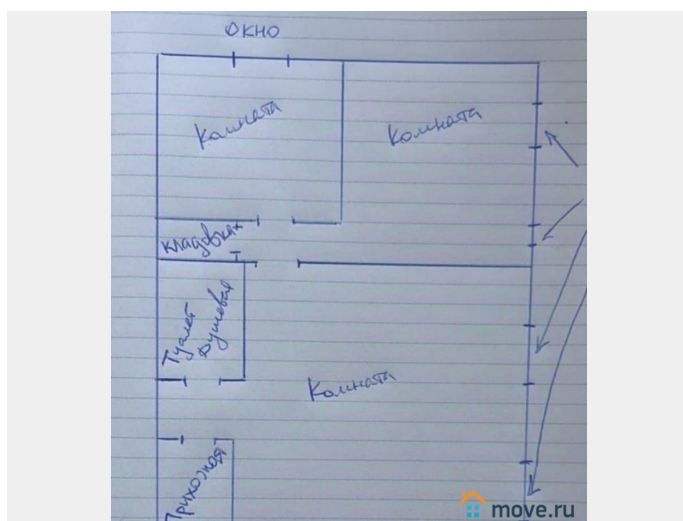 окно
Комната
Комната
кладовка
Туалет
душевая
Комната
Прихожая
move.ru